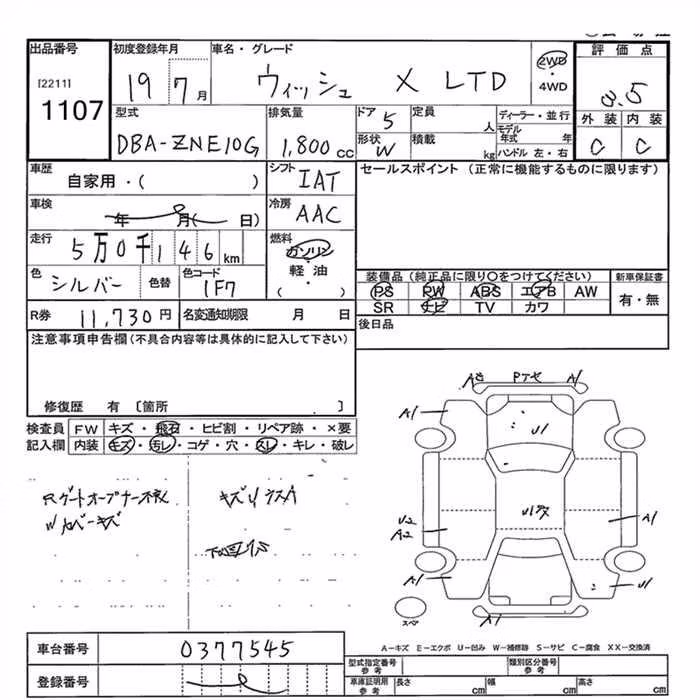 出品番号 初度登録年月 車名・グレード 2WD 評価点
[2211] 19 7月 ウィッシュ X LTD ・4WD 3.5
1107 型式 排気量 ドア 定員 ディーラー・並行 外装 内装
DBA-ZNE10G 1,800cc 5 人 モデル年式 年 C C
形状 積載 W kg ハンドル 左・右
車歴 シフト セールスポイント(正常に機能するものに限ります)
自家用・( ) IAT
車検 冷房
年 月( 日) AAC
走行 燃料
5万0千146km ガソリン
色 色替 色コード ・軽油
シルバー 1F7 ( ・ )
装備品(純正品に限り○をつけてください) 新車保証書
PS PW ABS エアB AW 有・無
SR ナビ TV カワ
R券 11,730円 名変通知期限 月 日 後日品
注意事項申告欄(不具合内容等は具体的に記入して下さい)
修復歴 有 〔箇所 〕
検査員 FW キズ・飛石・ヒビ割・リペア跡・×要
記入欄 内装 キズ・汚レ・コゲ・穴・スレ・キレ・破レ
A1
A1
U1
A1
U2
A2
A1
U1
A1
スペア
A-キズ E-エクボ U-凹み W-補修跡 S-サビ C-腐食 XX-交換済
車台番号 0377545
型式指定番号 参考 類別区分番号 参考
登録番号 車庫証明用 参考 長さ cm 幅 cm 高さ cm